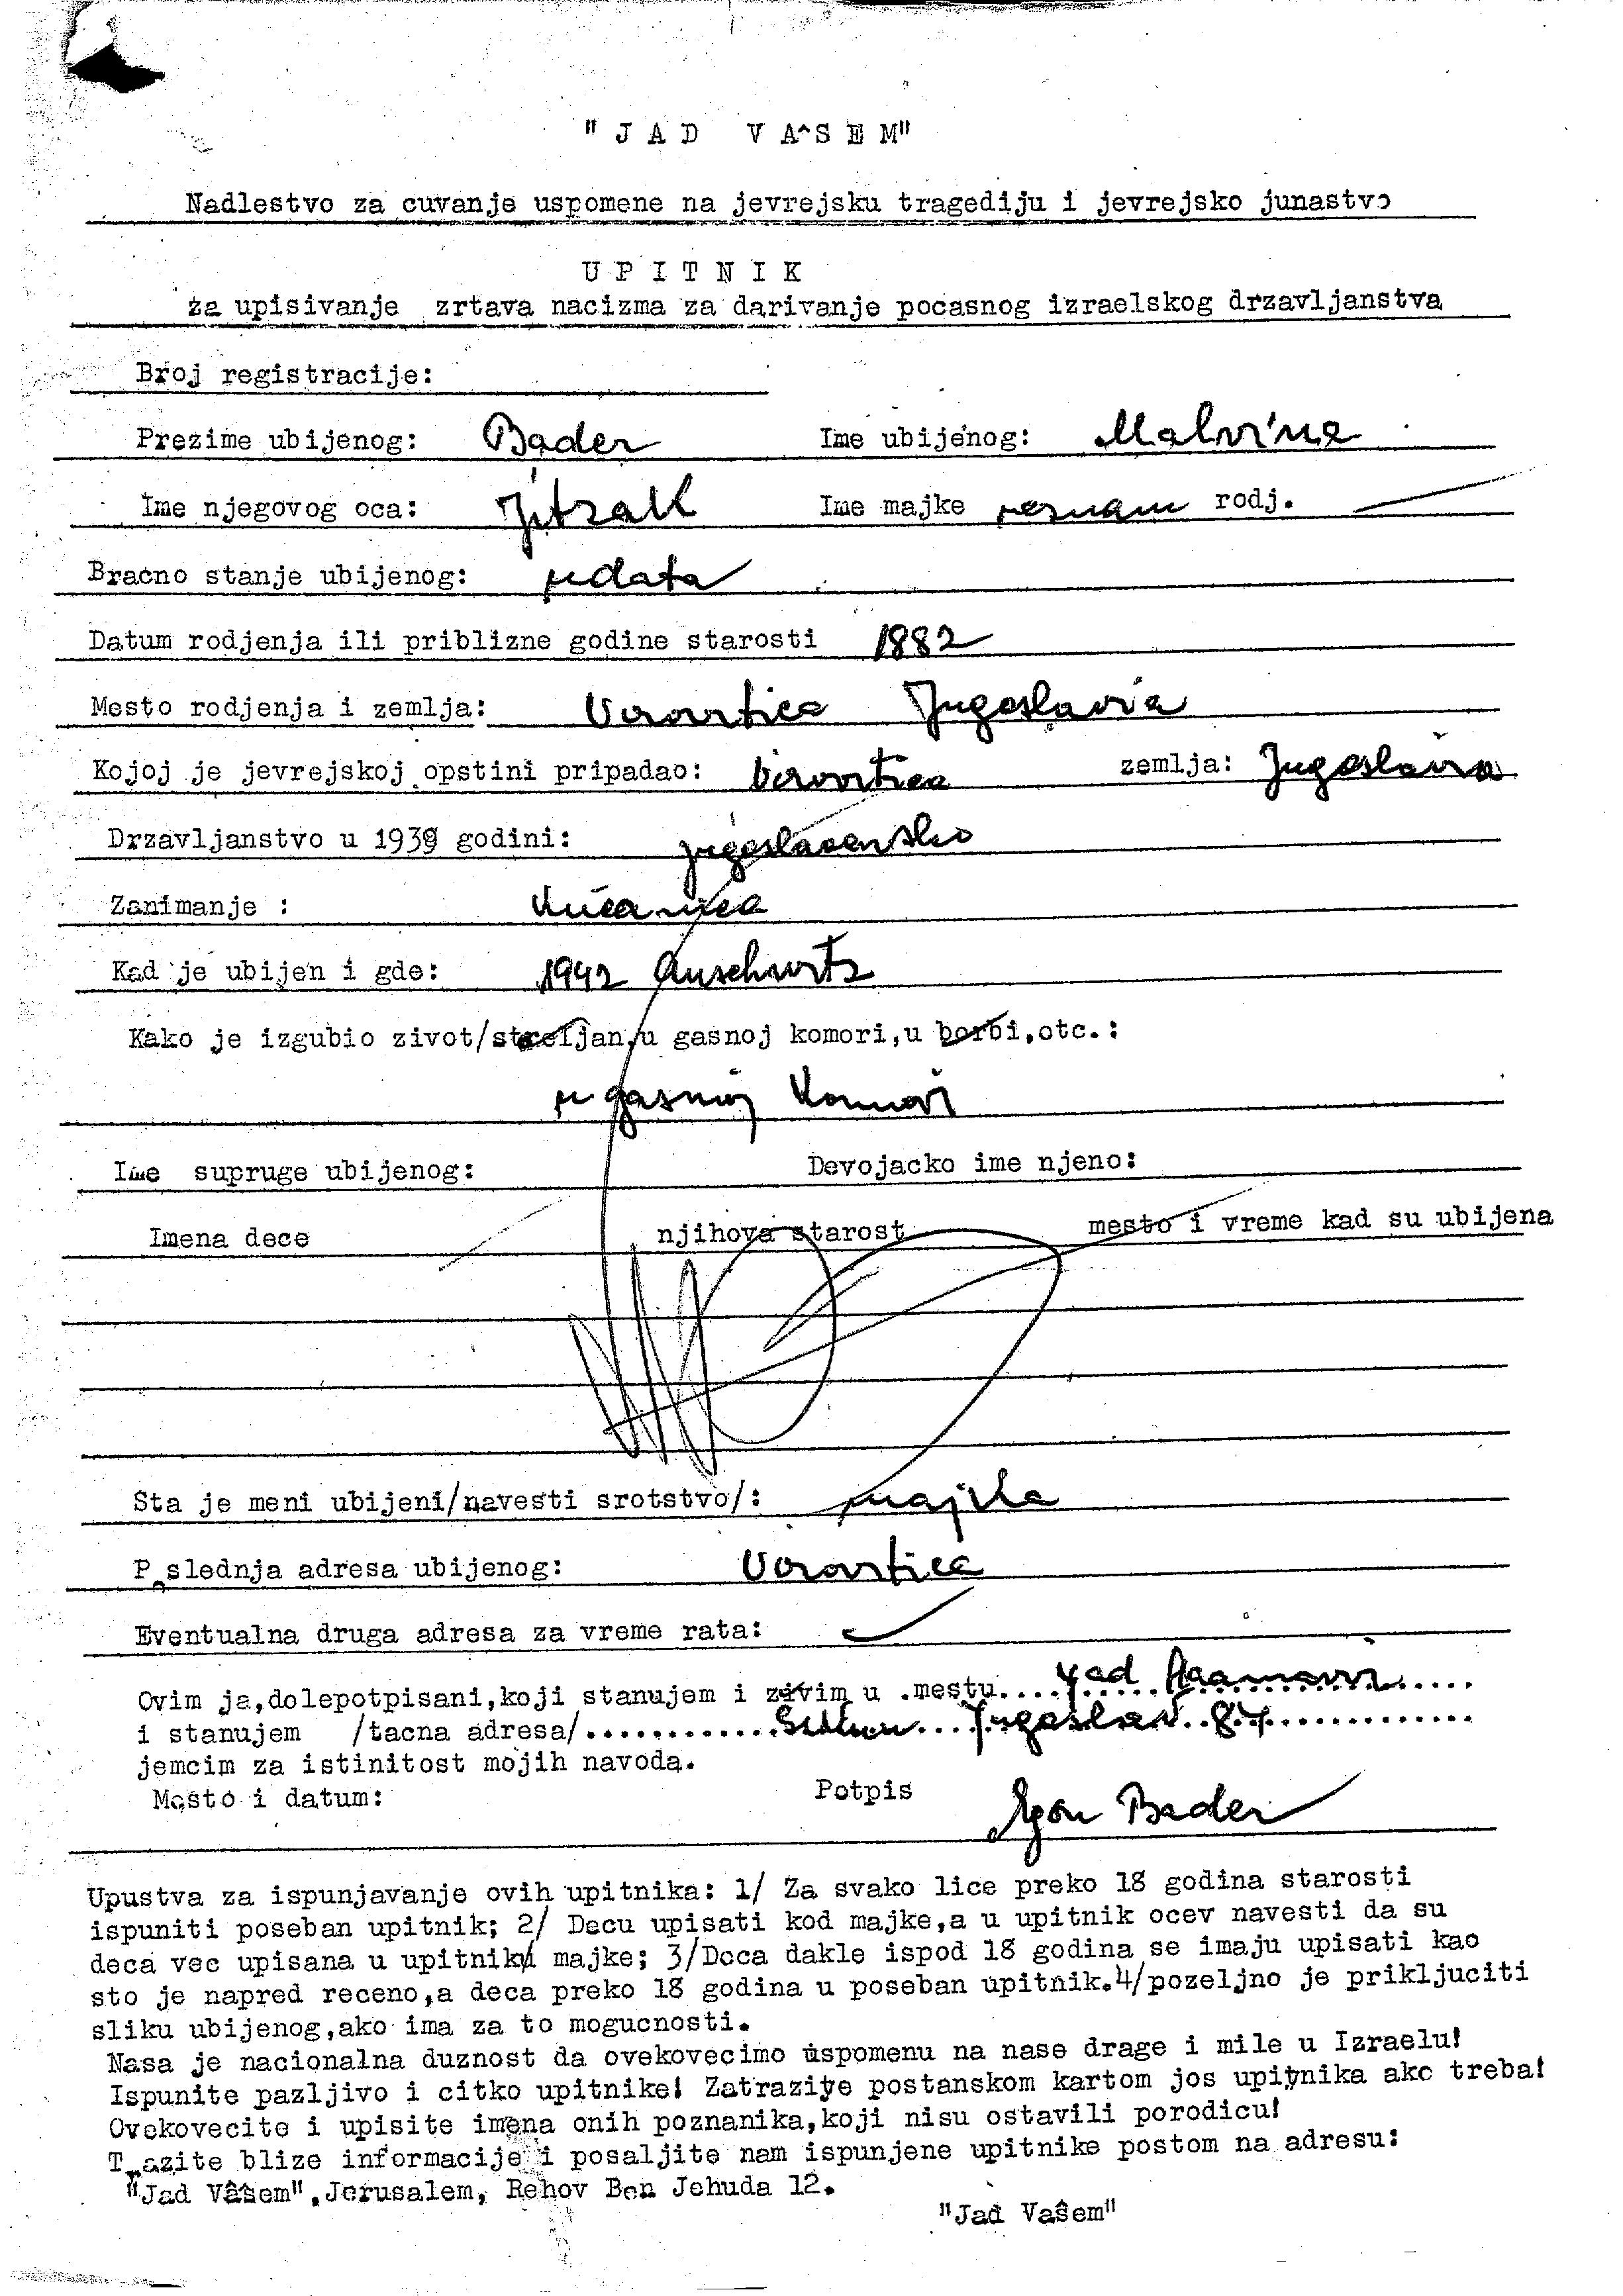 "JAD VA^SEM"
Nadlestvo za cuvanje uspomene na jevrejsku tragediju i jevrejsko junastvo
UPITNIK
za upisivanje zrtava nacizma za darivanje pocasnog izraelskog drzavljanstva
Broj registracije:
Prezime ubijenog: Bader Ime ubijenog: Malvina
Ime njegovog oca: Jitzak Ime majke neznam rodj.
Bracno stanje ubijenog: udata
Datum rodjenja ili priblizne godine starosti 1882
Mesto rodjenja i zemlja: Virovitica Jugoslavia
Kojoj je jevrejskoj opstini pripadao: Virovitica zemlja: Jugoslavia
Drzavljanstvo u 1939 godini: jugoslavensko
Zanimanje : kućanica
Kad je ubijen i gde: 1942 Auschwitz
Kako je izgubio zivot/streljan,u gasnoj komori,u borbi,otc.:
u gasnoj komori
Ime supruge ubijenog: Devojacko ime njeno:
Imena dece njihova starost mesto i vreme kad su ubijena
Sta je meni ubijeni/navesti srotstvo/: majka
P slednja adresa ubijenog: Virovitica
Eventualna druga adresa za vreme rata:
Ovim ja,dolepotpisani,koji stanujem i zivim u .mestu....Yad Hamaavir.....
i stanujem /tacna adresa/............Šikun...Jugoslav..87..............
jemcim za istinitost mojih navoda.
Mesto i datum: Potpis Egon Bader
Upustva za ispunjavanje ovih upitnika: 1/ Za svako lice preko 18 godina starosti
ispuniti poseban upitnik; 2/ Decu upisati kod majke,a u upitnik ocev navesti da su
deca vec upisana u upitniku majke; 3/Doca dakle ispod 18 godina se imaju upisati kao
sto je napred receno,a deca preko 18 godina u poseban upitnik.4/pozeljno je prikljuciti
sliku ubijenog,ako ima za to mogucnosti.
Nasa je nacionalna duznost da ovekovecimo uspomenu na nase drage i mile u Izraelu!
Ispunite pazljivo i citko upitnike! Zatrazite postanskom kartom jos upitnika ako treba!
Ovekovecite i upisite imena onih poznanika,koji nisu ostavili porodicu!
T azite blize informacije i posaljite nam ispunjene upitnike postom na adresu:
"Jad Vâsem",Jerusalem, Rehov Ben Jehuda 12.
"Jad Vaŝem"